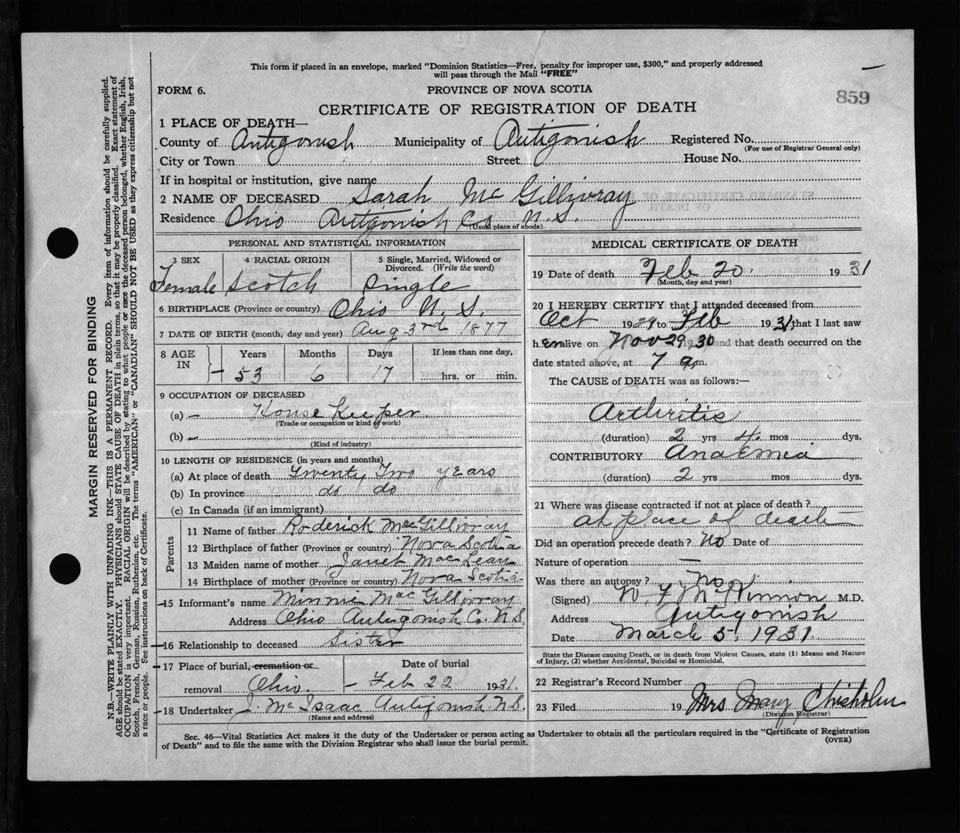 This form if placed in an envelope, marked "Dominion Statistics—Free, penalty for improper use, $300," and properly addressed
will pass through the Mail "FREE"
FORM 6.
PROVINCE OF NOVA SCOTIA
859
CERTIFICATE OF REGISTRATION OF DEATH
1 PLACE OF DEATH—
County of Antigonish Municipality of Antigonish Registered No.
(For use of Registrar General only)
City or Town Street House No.
If in hospital or institution, give name
2 NAME OF DECEASED Sarah McGillivray
Residence Ohio Antigonish Co. N.S.
(Usual place of abode)
PERSONAL AND STATISTICAL INFORMATION
3 SEX 4 RACIAL ORIGIN 5 Single, Married, Widowed or
Divorced. (Write the word)
Female Scotch Single
6 BIRTHPLACE (Province or country) Ohio N.S.
7 DATE OF BIRTH (month, day and year) Aug 3rd 1877
8 AGE IN Years Months Days If less than one day,
53 6 17 hrs. or min.
9 OCCUPATION OF DECEASED
(a) House Keeper
(Trade or occupation or kind of work)
(b)
(Kind of industry)
10 LENGTH OF RESIDENCE (in years and months)
(a) At place of death Twenty Two years
(b) In province do do
(c) In Canada (if an immigrant)
Parents
11 Name of father Roderick MacGillivray
12 Birthplace of father (Province or country) Nova Scotia
13 Maiden name of mother Janet MacLean
14 Birthplace of mother (Province or country) Nova Scotia
15 Informant's name Minnie MacGillivray
Address Ohio Antigonish Co. N.S.
16 Relationship to deceased Sister
17 Place of burial, cremation or Date of burial
removal Ohio Feb 22 1931.
18 Undertaker J. McIsaac Antigonish N.S.
(Name and address)
MEDICAL CERTIFICATE OF DEATH
19 Date of death Feb 20. 1931
(Month, day and year)
20 I HEREBY CERTIFY that I attended deceased from
Oct 1929 to Feb 1931 that I last saw
h er alive on Nov 29 1930 and that death occurred on the
date stated above, at 7 a.m.
The CAUSE of DEATH was as follows:—
Arthritis
(duration) 2 yrs 4 mos dys.
CONTRIBUTORY Anaemia
(duration) 2 yrs mos dys.
21 Where was disease contracted if not at place of death?
at place of death
Did an operation precede death? No Date of
Nature of operation —
Was there an autopsy? No
(Signed) W. F. M. M.D.
Address Antigonish
Date March 5, 1931.
State the Disease causing Death, or in death from Violent Causes, state (1) Means and Nature
of Injury, (2) whether Accidental, Suicidal or Homicidal.
22 Registrar's Record Number
23 Filed 19 Mrs Mary Chisholm
(Division Registrar)
Sec. 46—Vital Statistics Act makes it the duty of the Undertaker or person acting as Undertaker to obtain all the particulars required in the "Certificate of Registration
of Death" and to file the same with the Division Registrar who shall issue the burial permit.
(OVER)
MARGIN RESERVED FOR BINDING
N.B.—WRITE PLAINLY WITH UNFADING INK—THIS IS A PERMANENT RECORD. Every item of information should be carefully supplied.
AGE should be stated EXACTLY. PHYSICIANS should STATE CAUSE OF DEATH in plain terms, so that it may be properly classified. Exact statement of
OCCUPATION is very important. RACIAL ORIGIN will be described by stating to what people or race the deceased person belonged, whether English, Irish,
Scotch, French, German, Russian, Ruthenian, etc. The terms "AMERICAN" or "CANADIAN" SHOULD NOT BE USED as they express citizenship but not
a race or people. See instructions on back of Certificate.